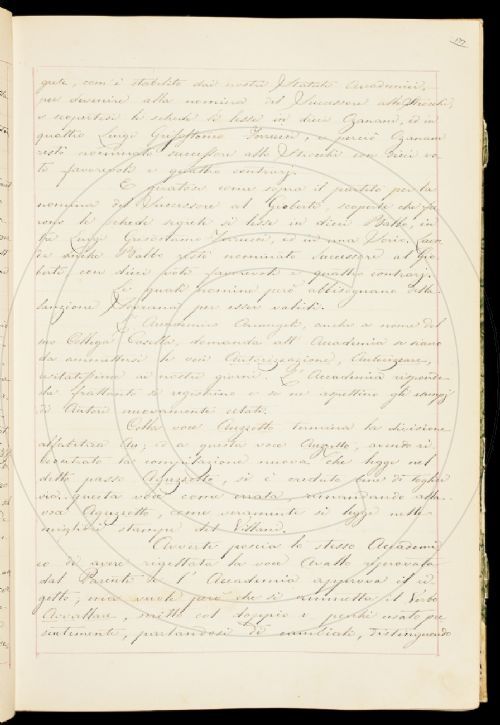 177
grete, com'è stabilito dai nostri Statuti Accademici,
per divenire alla nomina del Successore allo Strocchi,
e scopertesi le schede si lesse in dieci Ozanam, ed in
quattro Luigi Grisostomo Ferrucci, e perciò Ozanam
restò nominato successore allo Strocchi con dieci vo-
ti favorevoli e quattro contrarj.
E giratosi come sopra il partito per la
nomina del Successore al Gioberti, scoperte che fu-
rono le schede segrete si lesse in dieci Balbo, in
tre Luigi Grisostomo Ferrucci, ed in una
anche Balbo restò nominato successore al Gio-
berti con dieci voti favorevoli e quattro contrarj.
Le quali nomine però abbisognano della
sanzione Sovrana per esser valide.
L'Accademico Arcangeli, anche a nome del
suo Collega Casella, domanda all'Accademia se siano
da ammettersi le voci Autorizzazione, Autorizzare,
usitatissime ai nostri giorni. L'Accademia risponde
che frattanto si registrino e se ne aspettino gli esempj
di Autori nuovamente citati.
Colla voce Auzzetto termina la divisione
alfabetica Au; ed a questa voce Auzzetto, avendo ri-
scontrato la compilazione nuova che legge nel
detto passo Aguzzetto, si è creduto bene di toglier
via questa voce come errata, rimandando alla
voce Aguzzetto, come veramente si legge nelle
migliori stampe del Villani.
Avverte poscia lo stesso Accademi-
co di avere rigettata la voce Avallo approvata
dal Parenti. L'Accademia approva il ri-
getto, ma vuole però che si ammetta il Verbo
Avvallare, scritto col doppio v perchè usato pre-
sentemente, parlandosi di cambiali, distinguendo